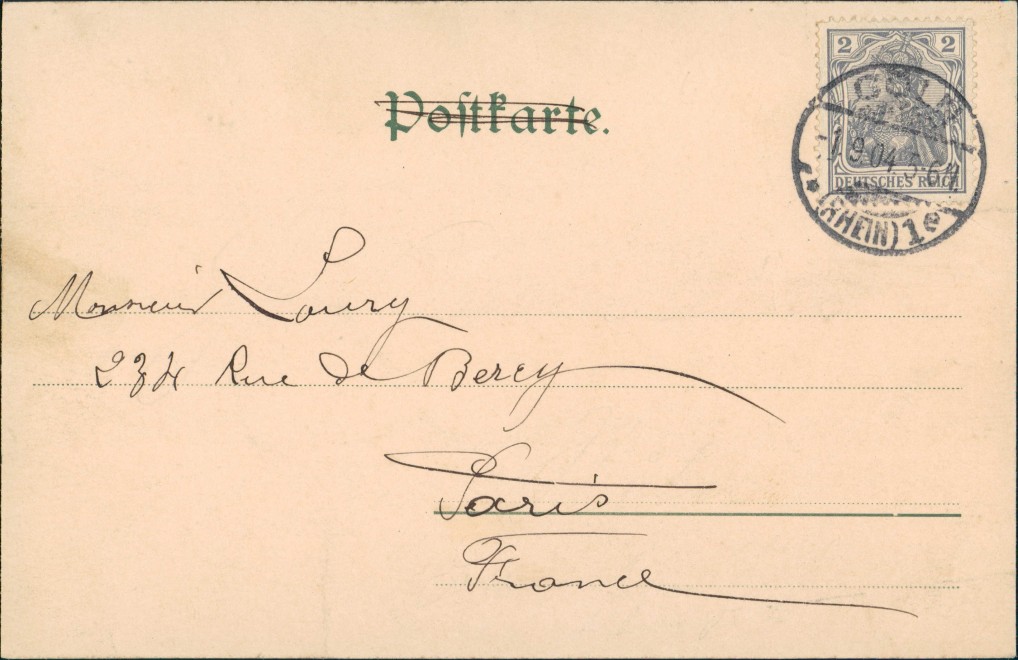 Postkarte.
2 2
DEUTSCHES REICH
CÖLN
1.9.04.5-6N
(RHEIN) 1e
Monsieur Loury
234 Rue de Bercy
Paris
France